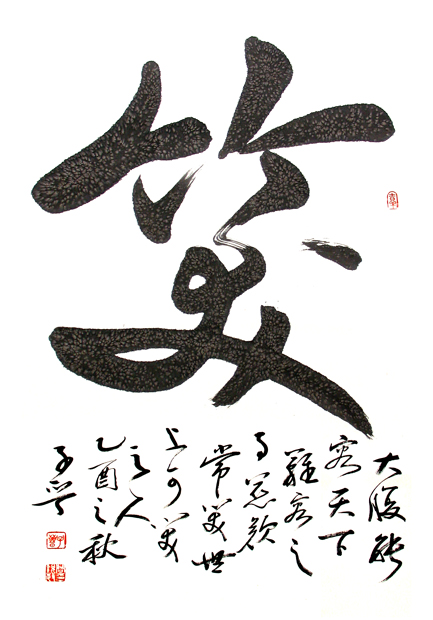 笑
大腹能
容天下
難容之
事慈顏
常笑世
上可笑
之人
乙酉之秋